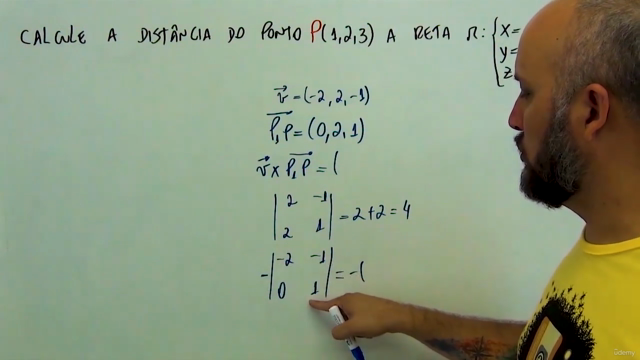 CALCULE A DISTÂNCIA DO PONTO P(1,2,3) A RETA r: { x=
y=
z
v⃗ = (-2, 2, -1)
P₁P⃗ = (0, 2, 1)
v⃗ x P₁P⃗ = (
| 2 -1 |
| 2 1 | = 2+2 = 4
-| -2 -1 |
| 0 1 | = -(
Udemy